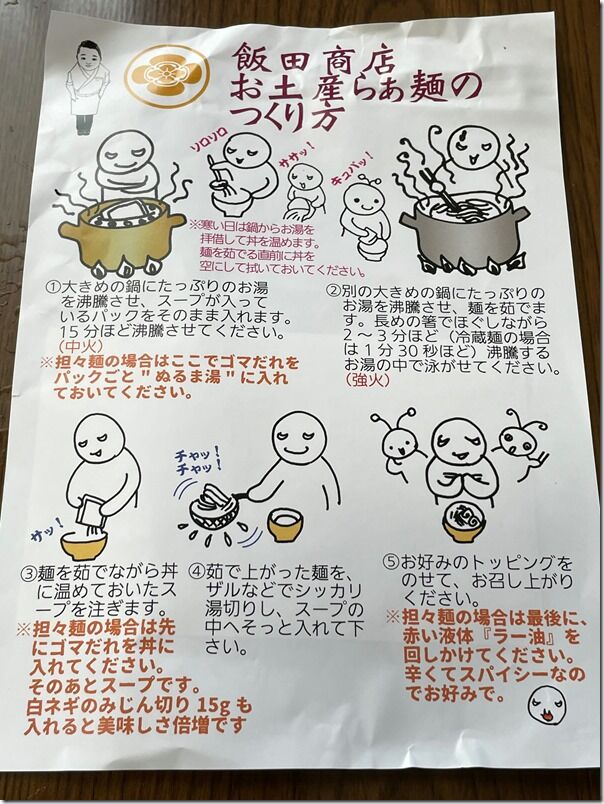 飯田商店
お土産らぁ麺の
つくり方
ソロソロ
ササッ！
キュパッ！
※寒い日は鍋からお湯を
拝借して丼を温めます。
麺を茹でる直前に丼を
空にして拭いておいてください。
①大きめの鍋にたっぷりのお湯
を沸騰させ、スープが入って
いるパックをそのまま入れます。
15分ほど沸騰させてください。
(中火)
※担々麺の場合はここでゴマだれを
パックごと"ぬるま湯"に入れ
ておいてください。
②別の大きめの鍋にたっぷりの
お湯を沸騰させ、麺を茹でで
ます。長めの箸でほぐしながら
2～3分ほど（冷蔵麺の場合
は1分30秒ほど）沸騰する
お湯の中で泳がせてください。
(強火)
サッ！
③麺を茹でながら丼
に温めておいたス
ープを注ぎます。
※担々麺の場合は先
にゴマだれを丼に
入れてください。
そのあとスープです。
白ネギのみじん切り15gも
入れると美味しさ倍増です
チャッ！
チャッ！
④茹で上がった麺を、
ザルなどでシッカリ
湯切りし、スープの
中へそっと入れて下
さい。
⑤お好みのトッピングを
のせて、お召し上がり
ください。
※担々麺の場合は最後に、
赤い液体『ラー油』を
回しかけてください。
辛くてスパイシーなの
でお好みで。